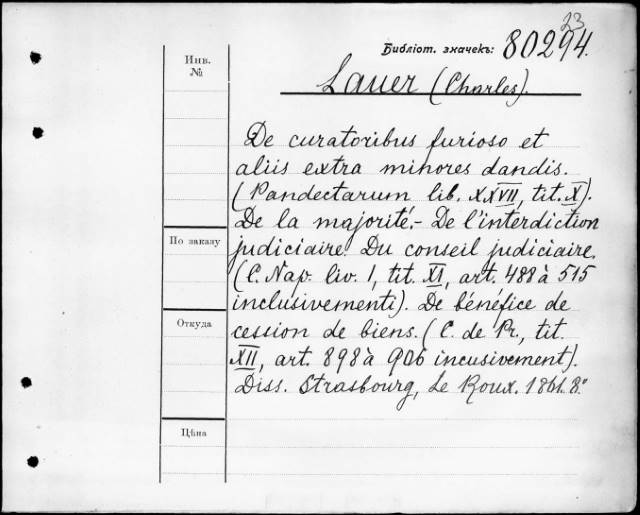 23
Библіот. значекъ: 80294.
Инв.
№
Lauer (Charles).
De curatoribus furioso et
aliis extra minores dandis.
(Pandectarum lib. XXVII, tit. X).
De la majorité.- De l'interdiction
По заказу
judiciaire. Du conseil judiciaire.
(C. Nap. liv. 1, tit. XI, art. 488 à 515
inclusivementi). De bénéfice de
Откуда
cession de biens. (C. de Pr., tit.
XII, art. 898 à 906 incusivement).
Diss. Strasbourg, Le Roux. 1861. 8.°
Цѣна